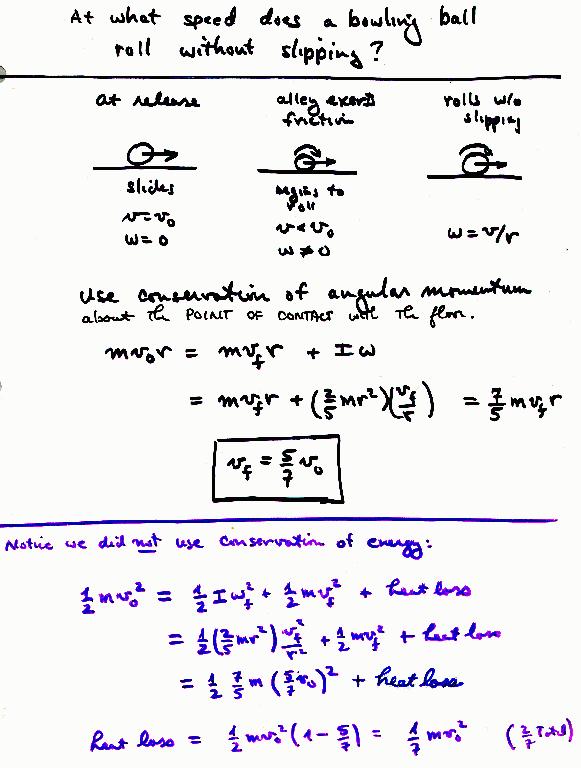 At what speed does a bowling ball
roll without slipping?
at release
slides
v=v₀
ω=0
alley exerts
friction
begins to
roll
v<v₀
ω≠0
rolls w/o
slipping
ω=v/r
Use conservation of angular momentum
about the POINT OF CONTACT with the floor.
mv₀r = mv_f r + Iω
= mv_f r + (2/5 mr²)(v_f/r) = 7/5 mv_f r
v_f = 5/7 v₀
Notice we did not use conservation of energy:
1/2 mv₀² = 1/2 Iω_f² + 1/2 mv_f² + heat loss
= 1/2 (2/5 mr²) v_f²/r² + 1/2 mv_f² + heat loss
= 1/2 7/5 m (5/7 v₀)² + heat loss
heat loss = 1/2 mv₀² (1 - 5/7) = 1/7 mv₀² (2/7 Total)